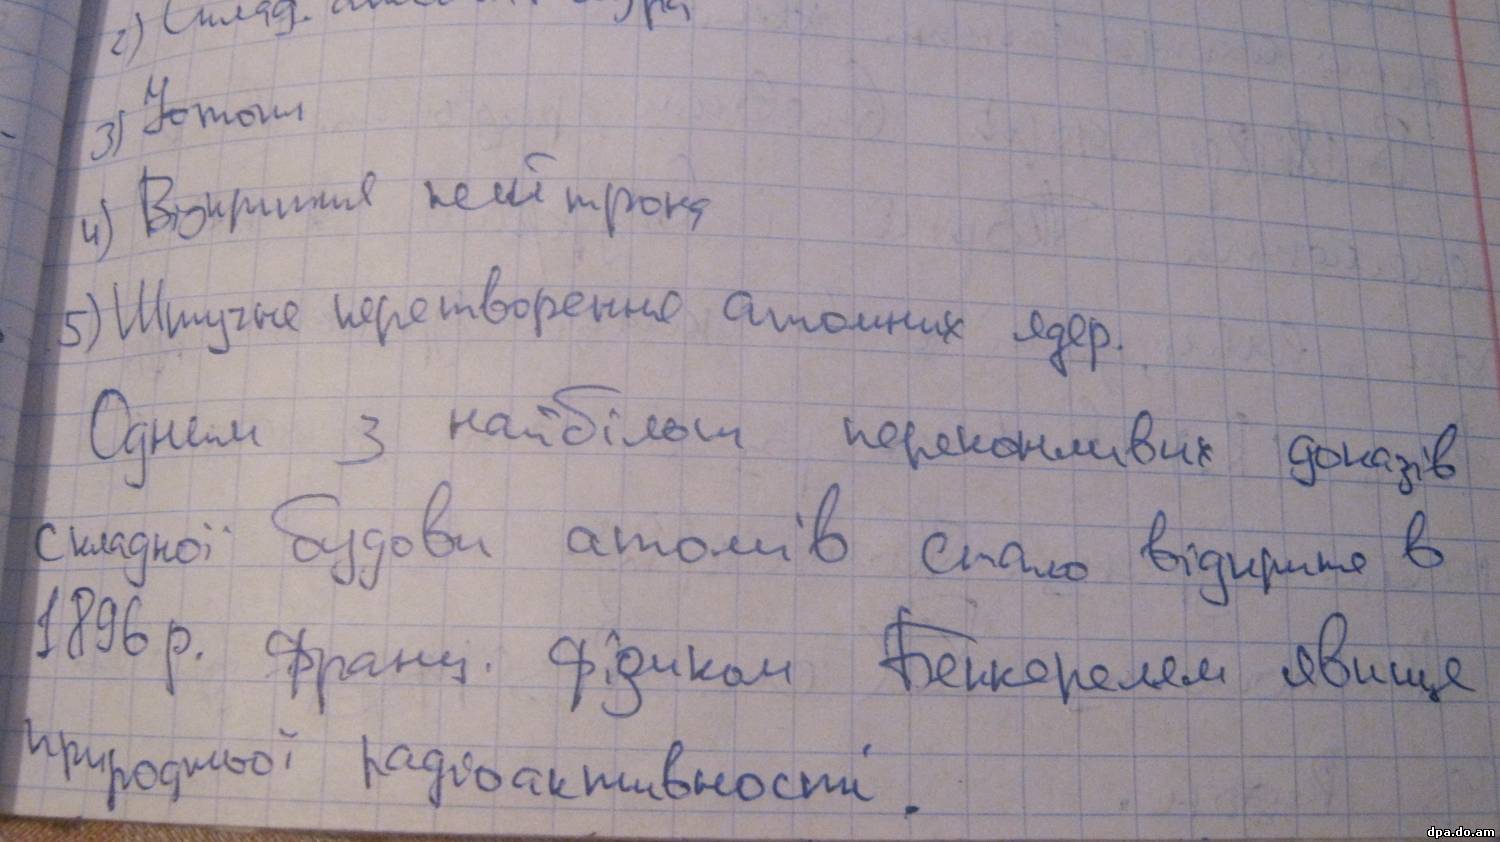 2) Склад.
3) Ізотопи
4) Відкриття нейтрона
5) Штучне перетворення атомних ядер.
Одним з найбільш переконливих доказів
складної будови атомів стало відкриття в
1896 р. франц. фізиком Беккерелем явище
природньої радіоактивності.
dpa.do.am